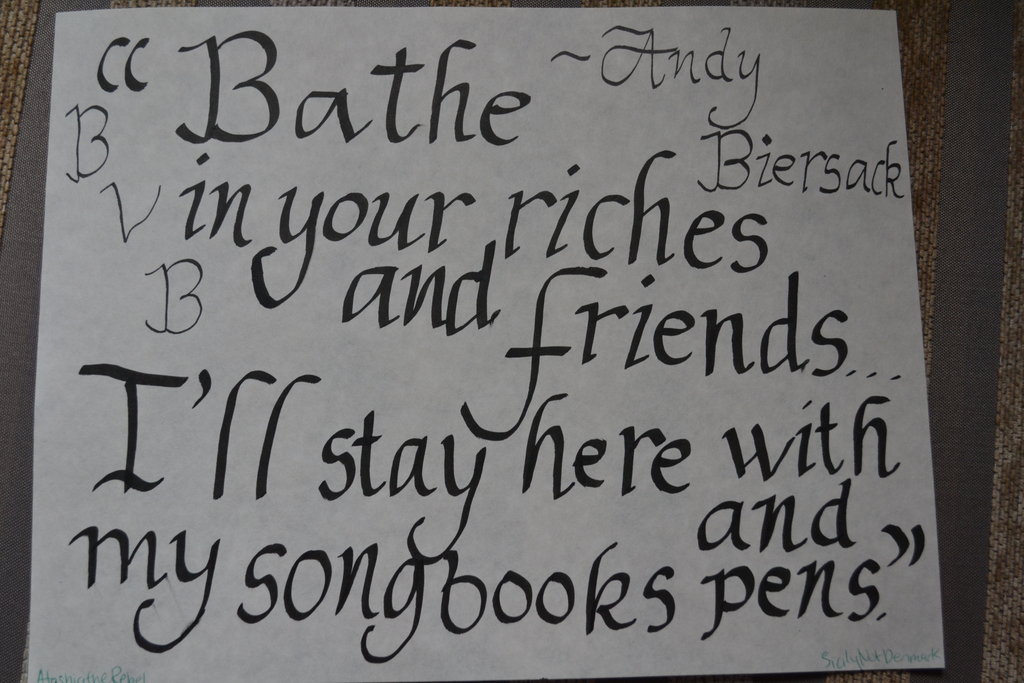 “Bathe
~Andy
Biersack
B
V
B
in your riches
and friends...
I'll stay here with
my songbooks and
pens.”
SicilyNotDenmark